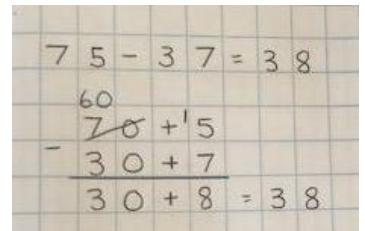 75 - 37 = 38
60
70 + 15
- 30 + 7
30 + 8 = 38